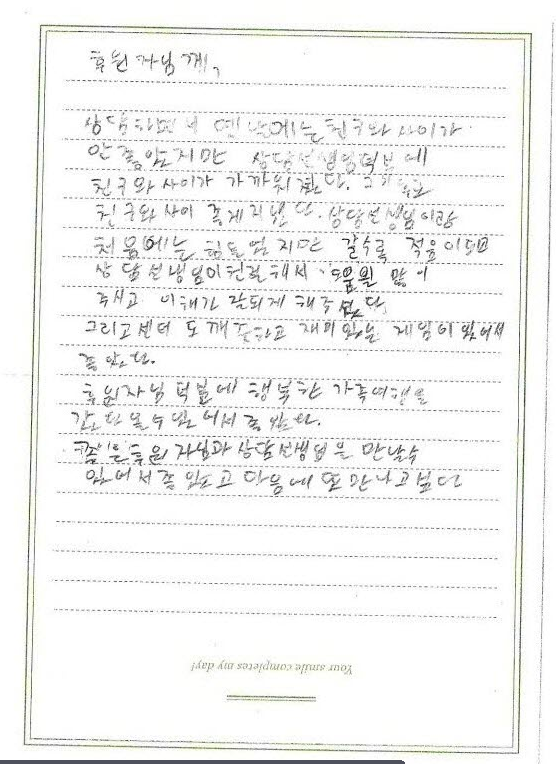 후원자님께,
상담하면서 옛날에는 친구와 사이가
안 좋았지만 상담선생님덕분에
친구와 사이가 가까워졌다. 그래도
친구와 사이 좋게지냈다. 상담선생님이랑
처음에는 힘들었지만 갈수록 적응이되며
상담선생님이친절해서 도움을 많이
주시고 이해가 잘되게 해주셨다
그리고센터 도 깨끗하고 재미있는 게임이 있어서
좋았다.
후원자님 덕분에 행복한 가족여행을
갔다 올수 있어서 좋았다.
좋은후원자님과 상담선생님을 만날수
있어서좋았고 다음에 또 만나고싶다
Your smile completes my day!